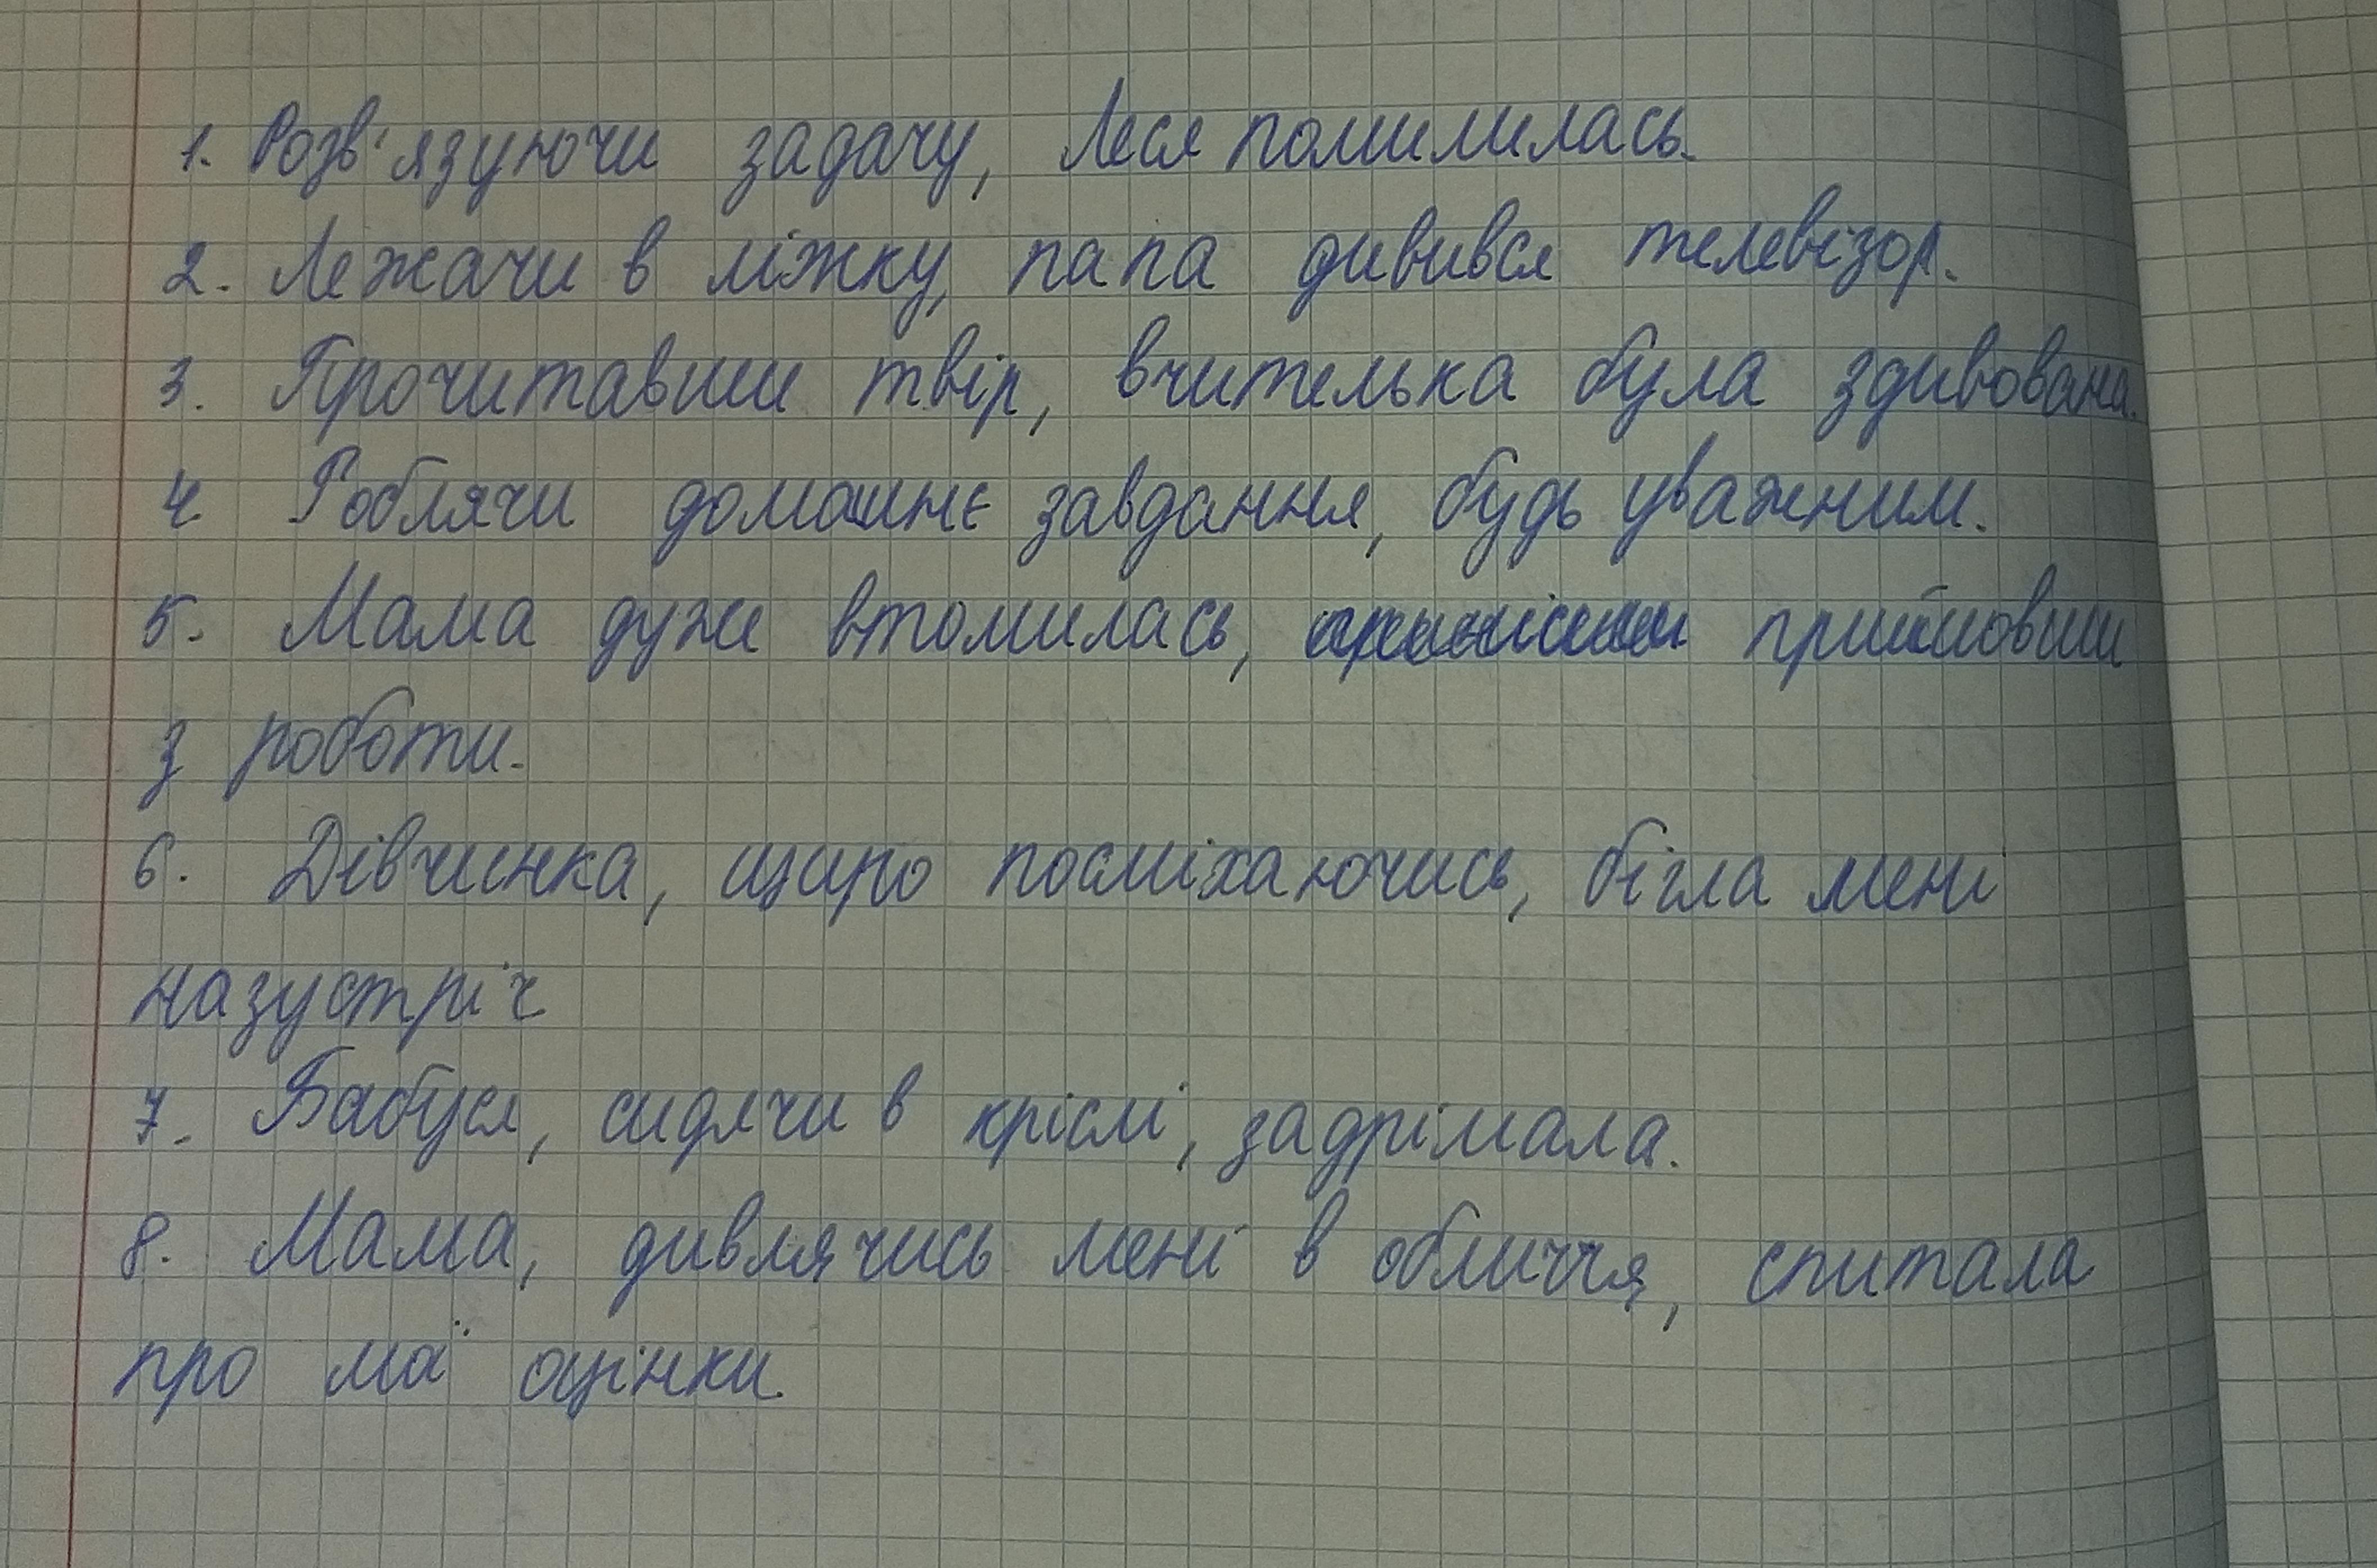 1. Розв'язуючи задачу, Леся помилилась.
2. Лежачи в ліжку, папа дивився телевізор.
3. Прочитавши твір, вчителька була здивована.
4 Роблячи домашнє завдання, будь уважним.
5. Мама дуже втомилась, прийшовши
з роботи.
6. Дівчинка, щиро посміхаючись, бігла мені
назустріч
7. Бабуся, сидячи в кріслі, задрімала.
8. Мама, дивлячись мені в обличчя, спитала
про мої оцінки.